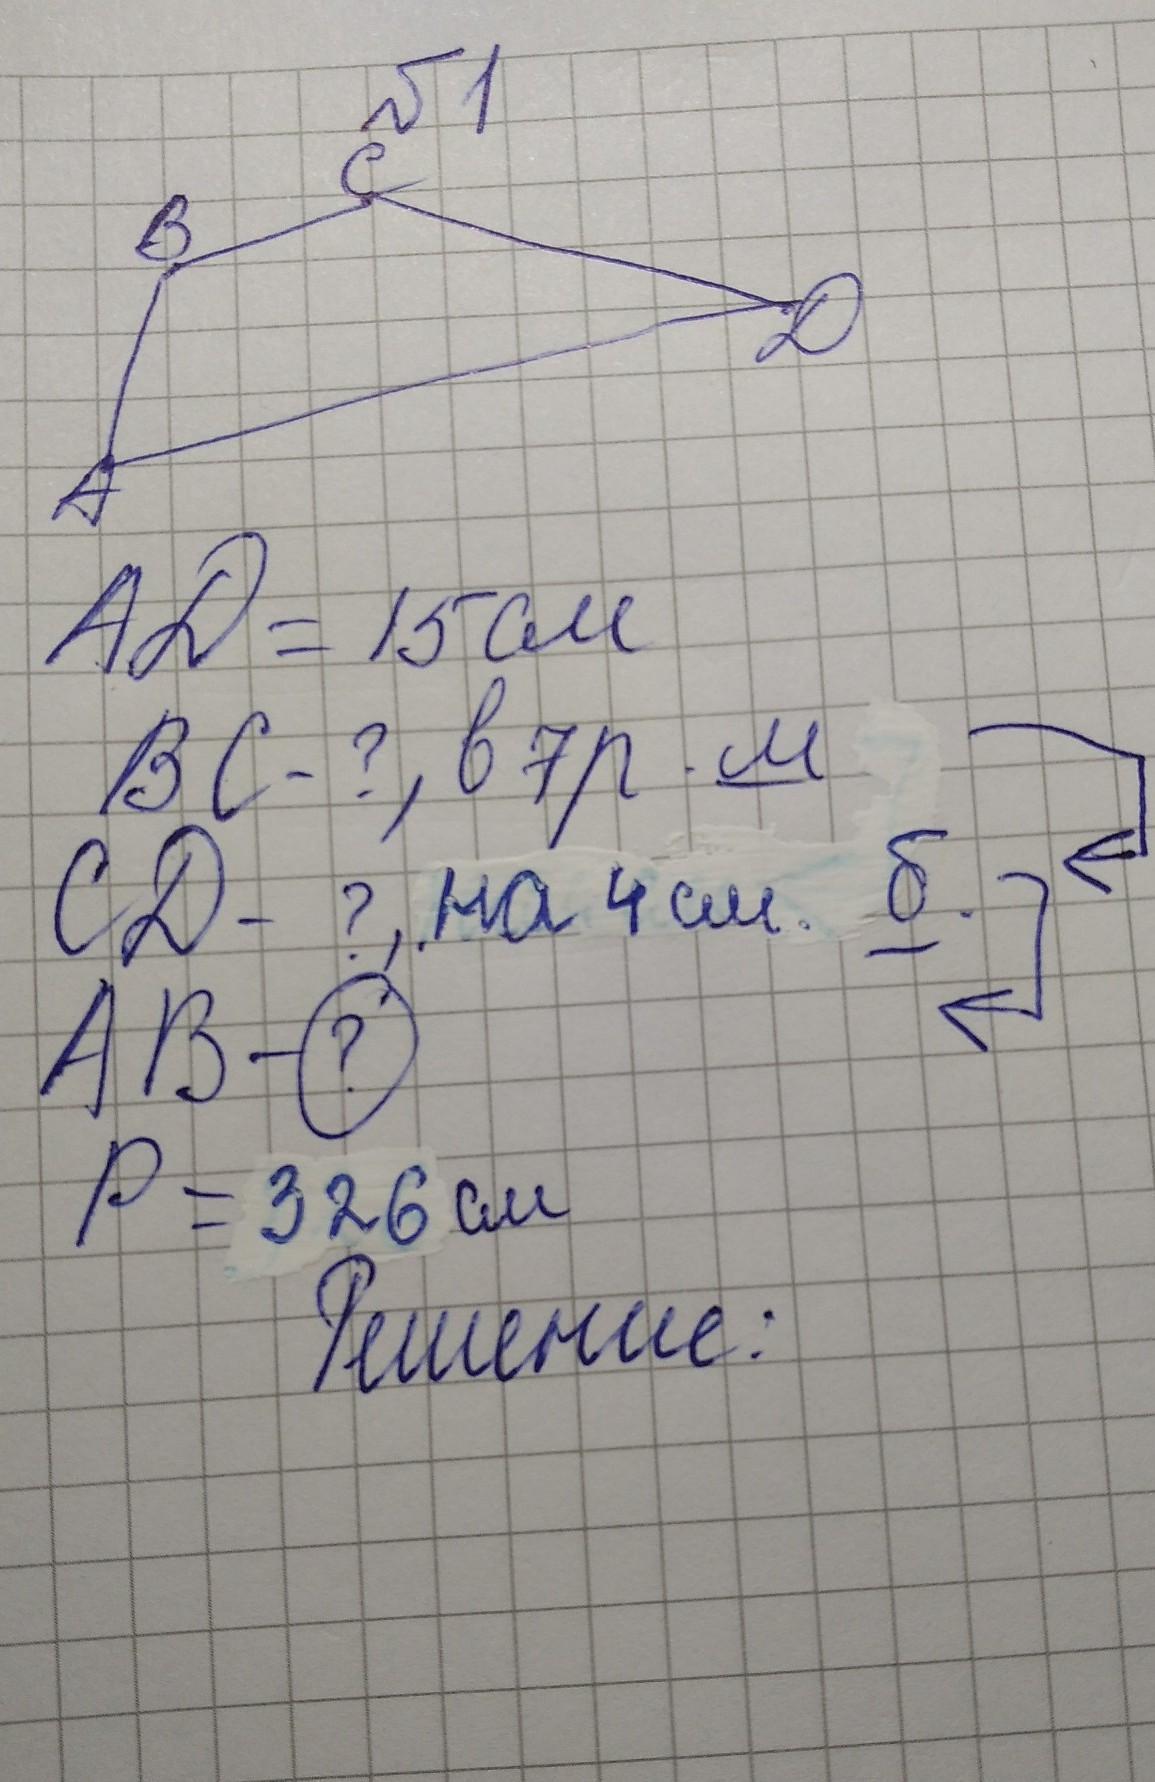 №1
C
B
D
A
AD = 15 см
BC - ?, в 7 р. м
CD - ?, на 4 см. б.
AB - ?
P = 326 см
Решение: